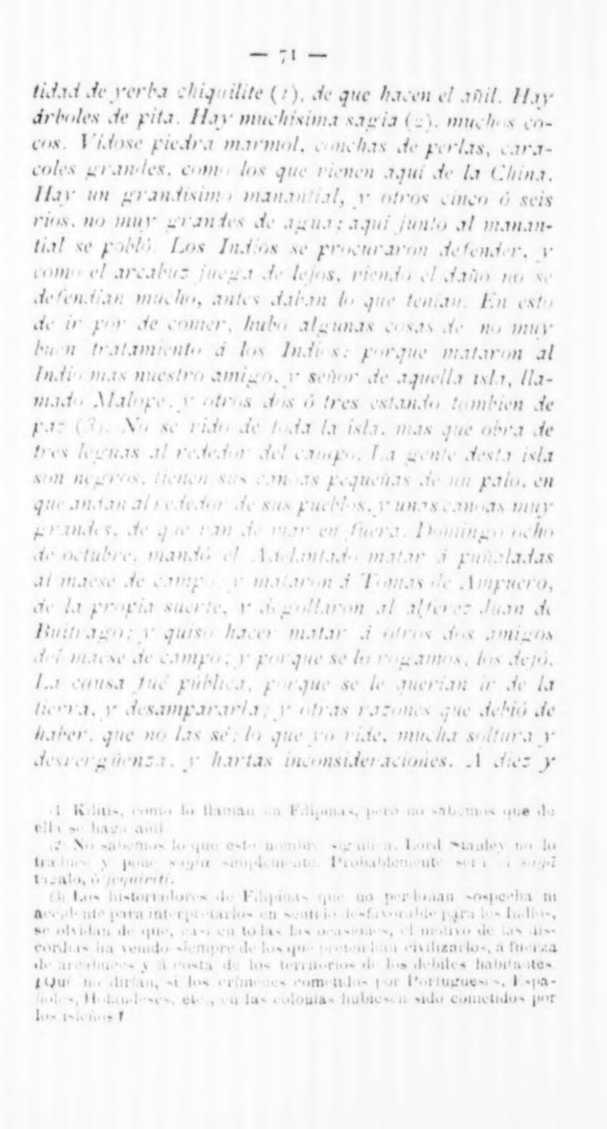 — 71 —
tidad de yerba chiquilite (1), de que hacen el añil. Hay
árboles de pita. Hay muchisima sagia (2), muchos co-
cos. Vidose piedra marmol, conchas de perlas, cara-
coles grandes, como los que vienen aquí de la China.
Hay un grandísimo manantial, y otros cinco ó seis
rios, no muy grandes de agua; aquí junto al manan-
tial se pobló. Los Indios se procuraron defender, y
como el arcabuz juega de lejos, viendo el daño no se
defendian mucho, antes daban lo que tenian. En esto
de ir por de comer, hubo algunas cosas de no muy
buen tratamiento á los Indios; porque mataron al
Indio mas nuestro amigo, y señor de aquella isla, lla-
mado Malope, y otros dos ó tres estando tambien de
paz (3). No se vido de toda la isla, mas que obra de
tres leguas al rededor del campo. La gente desta isla
son negros, tienen sus canoas pequeñas de un palo, en
que andan al rededor de sus pueblos, y unas canoas muy
grandes, de que van de mar en fuera. Domingo ocho
de octubre, mandó el Adelantado matar á puñaladas
al maese de campo, y mataron á Tomas de Ampuero,
de la propia suerte, y degollaron al alferez Juan de
Buitrago; y quiso hacer matar á otros dos amigos
del maese de campo; y porque se lo rogamos, los dejó.
La causa fué pública, porque se le querian ir de la
tierra, y desampararla; y otras razones que debió de
haber, que no las sé; lo que yo vide, mucha soltura y
desvergüenza, y hartas inconsideraciones. A diez y
(1) como lo llaman en Filipinas, pero no sabemos que de
ella se haga añil.
(2) No sabemos lo que este nombre significa. Lord Stanley no lo
traduce y pone sagia simplemente. Probablemente será
tagalo, ó jequiriti.
(3) Los historiadores de Filipinas que no perdonan sospecha ni
accidente para interpretarlos en sentido desfavorable para los Indios,
se olvidan de que, casi en todas las ocasiones, el motivo de las dis-
cordias ha venido siempre de los que pretendian civilizarlos, á fuerza
de arcabuces y á costa de los territorios de los débiles habitantes.
¡Qué no dirían, si los crímenes cometidos por Portugueses, Espa-
ñoles, Holandeses, etc., en las colonias hubiesen sido cometidos por
los isleños!